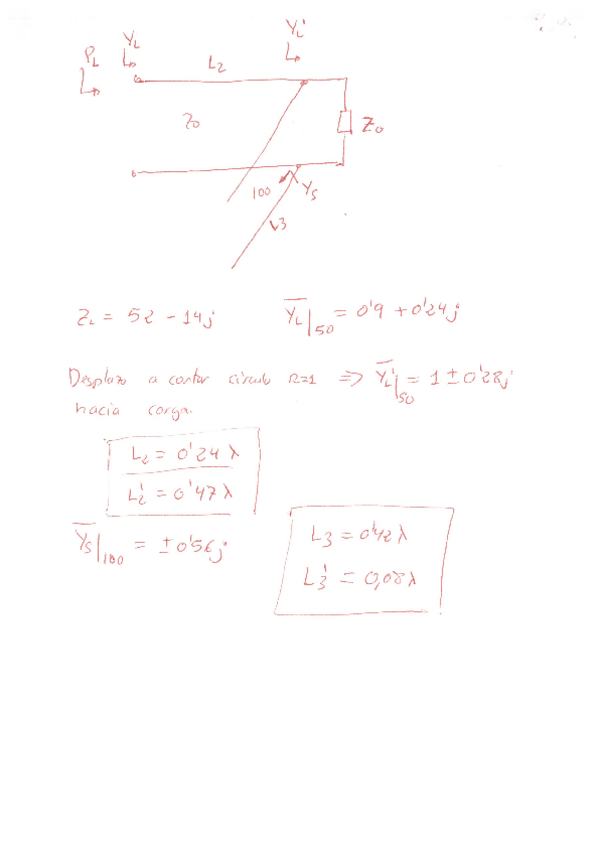 Y_L'
Y_L
P_L
L2
Z0
Z0
100
Y_S
L3
Z_L = 52 - 14j
Y̅_L|_50 = 0'9 + 0'24j
Desplazo a cortar circulo r=1 => Y̅_L'|_50 = 1 ± 0'28j
hacia carga.
L2 = 0'24 λ
L2' = 0'47 λ
Y̅_S|_100 = ± 0'56j
L3 = 0'42 λ
L3' = 0,08 λ